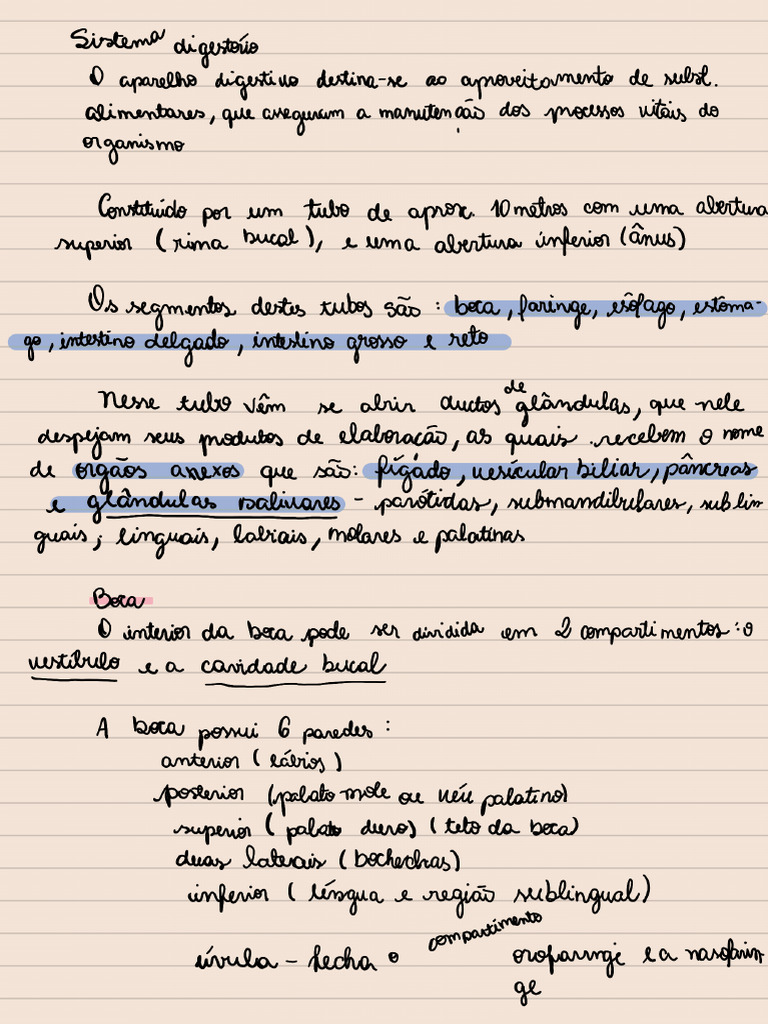 Sistema digestório
O aparelho digestivo destina-se ao aproveitamento de subst.
alimentares, que asseguram a manutenção dos processos vitais do
organismo
Constituído por um tubo de aprox. 10 metros com uma abertura
superior (rima bucal), e uma abertura inferior (ânus)
Os segmentos destes tubos são : boca, faringe, esôfago, estôma-
go, intestino delgado, intestino grosso e reto
Nesse tubo vêm se abrir ductos de glândulas, que nele
despejam seus produtos de elaboração, as quais recebem o nome
de orgãos anexos que são: fígado, vesicular biliar, pâncreas
e glândulas salivares - parótidas, submandibulares, sublin
guais, linguais, labiais, molares e palatinas
Boca
O interior da boca pode ser dividida em 2 compartimentos : o
vestíbulo e a cavidade bucal
A boca possui 6 paredes :
anterior (lábios)
posterior (palato mole ou véu palatino)
superior (palato duro) (teto da boca)
duas laterais (bochechas)
inferior (língua e região sublingual)
úvula - fecha o compartimento orofaringe e a nasofarin-
ge